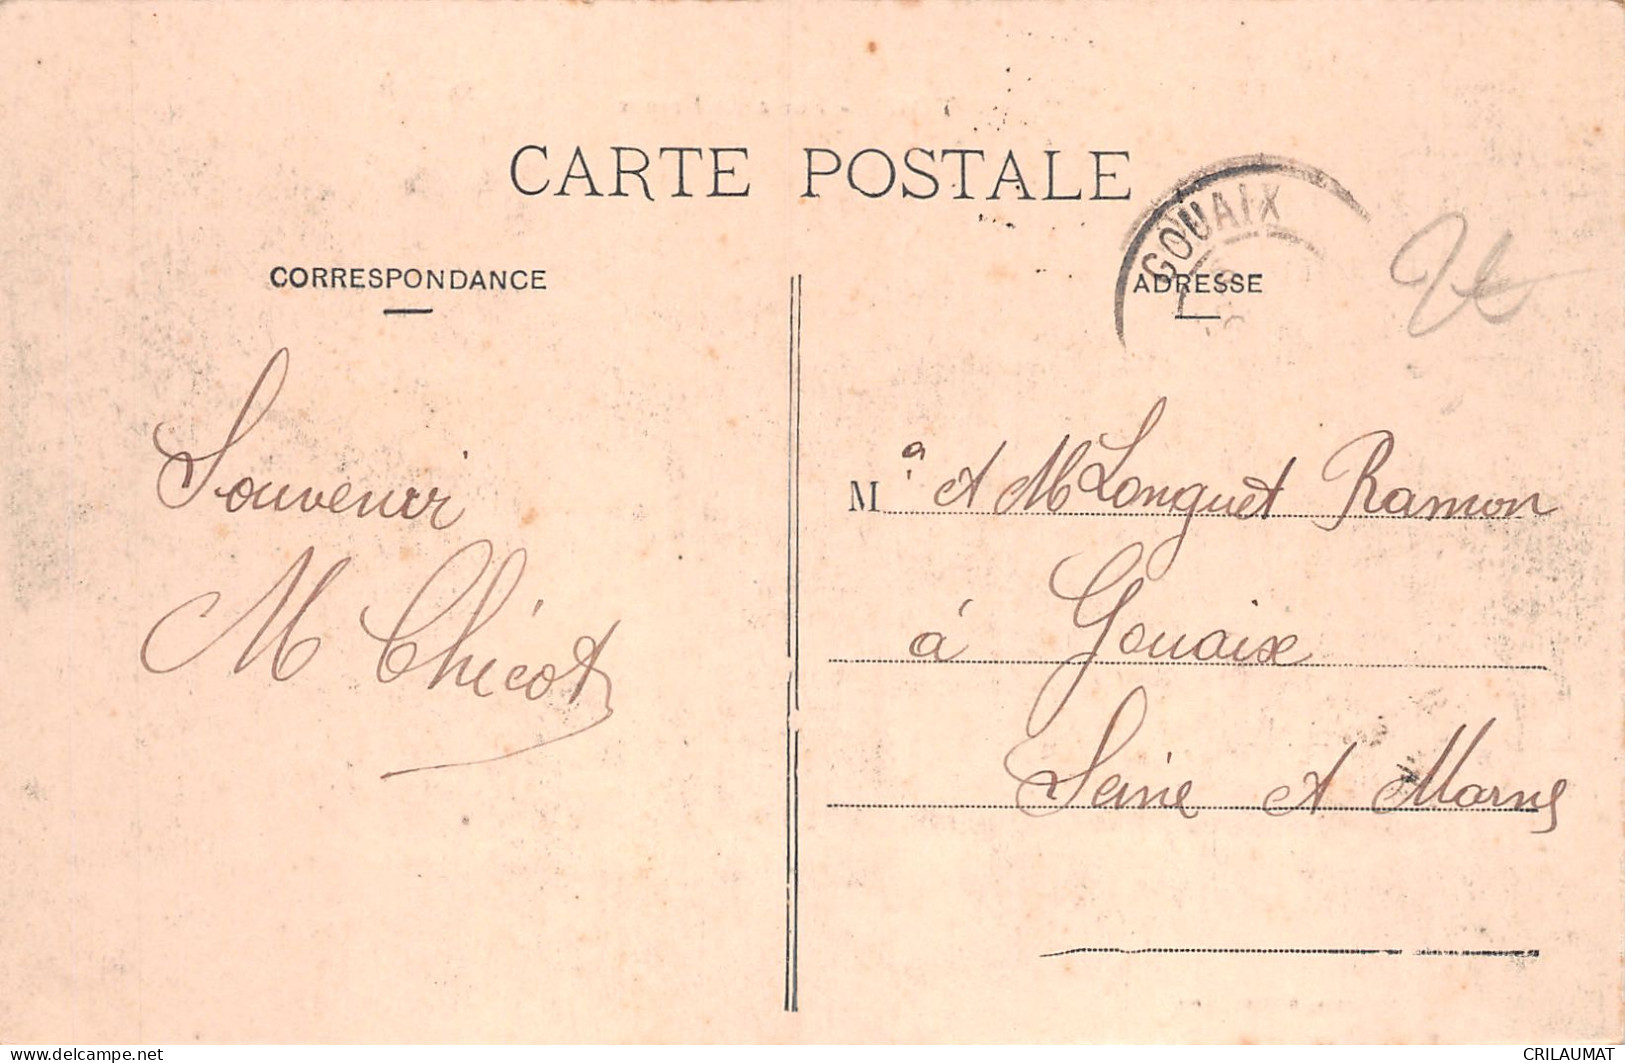 CARTE POSTALE
GOUAIX
CORRESPONDANCE
ADRESSE
Souvenir
M Chicot
M a et M Longuet Ramon
à Gouaix
Seine et Marne
www.delcampe.net
CRILAUMAT